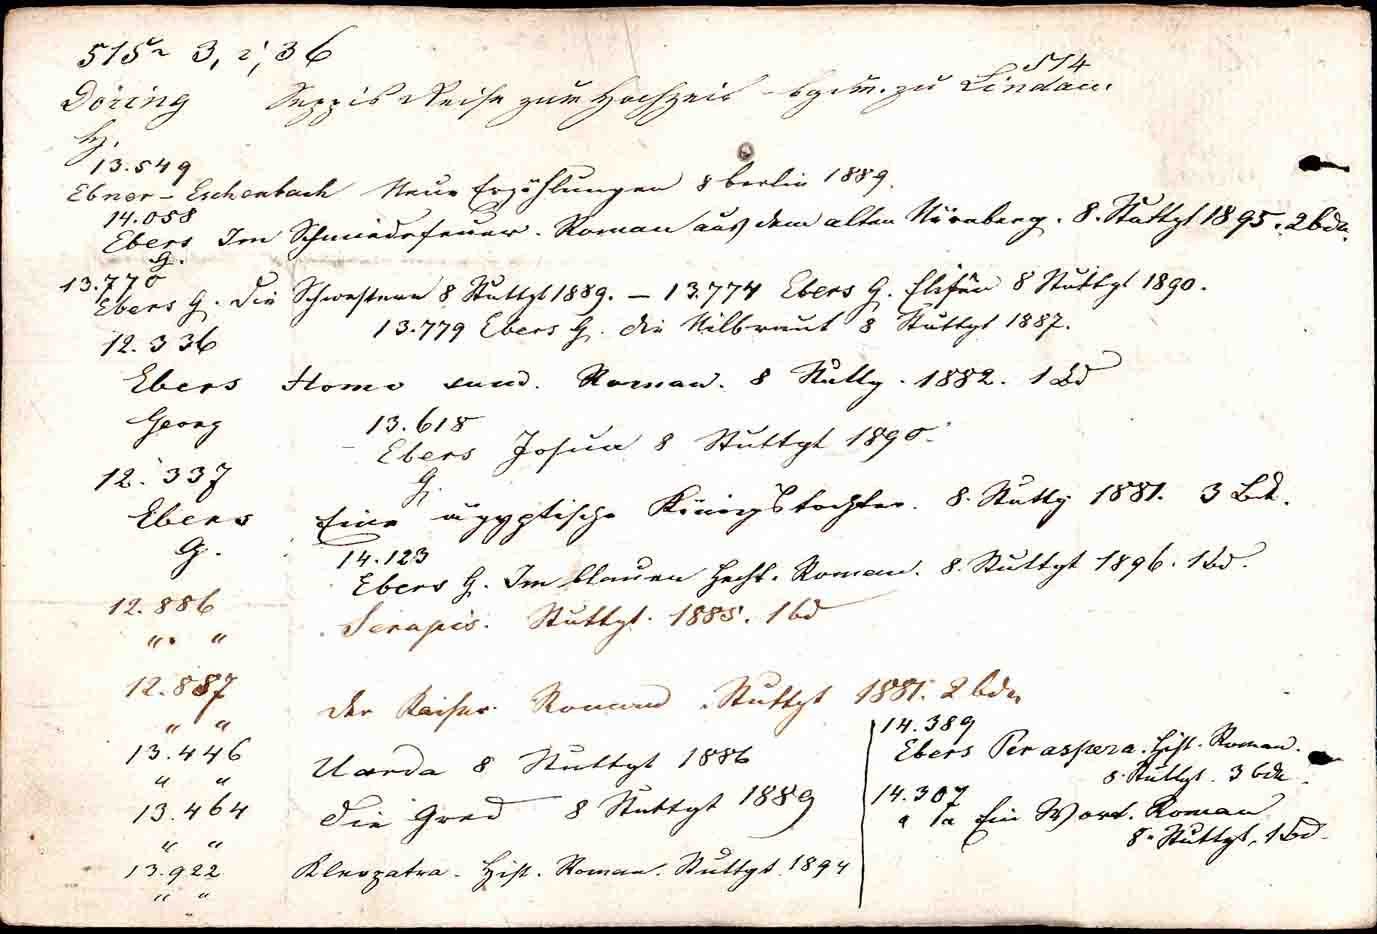 515 3, 2, 36
Döring Seppis Reise zum Hochzeit zu Lindau. 514
H.
13.549
Ebner-Eschenbach Neue Erzählungen 8 berlin 1889.
14.058
Ebers Im Schmiedefeuer. Roman aus dem alten Nürnberg. 8. Stuttgt 1895. 2 bde.
G.
13.770
Ebers G. die Schwestern 8 Stuttgt 1889. — 13.774 Ebers G. Elifên 8 Stuttgt 1890.
13.779 Ebers G. die Nilbraut 8 Stuttgt 1887.
12.336
Ebers Homo sum. Roman. 8 Stuttg. 1882. 1 Bd
Georg
13.618
Ebers Josua 8 Stuttgt 1890.
G.
12.337
Ebers Eine ägyptische Königstochter. 8. Stuttg 1881. 3 Bd.
G.
14.123
Ebers G. Im blauen Hecht. Roman. 8. Stuttgt 1896. 1 bd.
12.886
" " Serapis. Stuttgt. 1885. 1 bd
12.887
" " der Kaiser. Roman Stuttgt 1881. 2 bde.
13.446
" " Uarda 8 Stuttgt 1886
13.464
" " die Gred 8 Stuttgt 1889
13.922
" " Kleopatra. Hist. Roman. Stuttgt 1894
14.389
Ebers Per aspera. Hist. Roman.
8 Stuttgt. 3 bde.
14.307
Ein Wort. Roman
8. Stuttgt. 1 Bd.